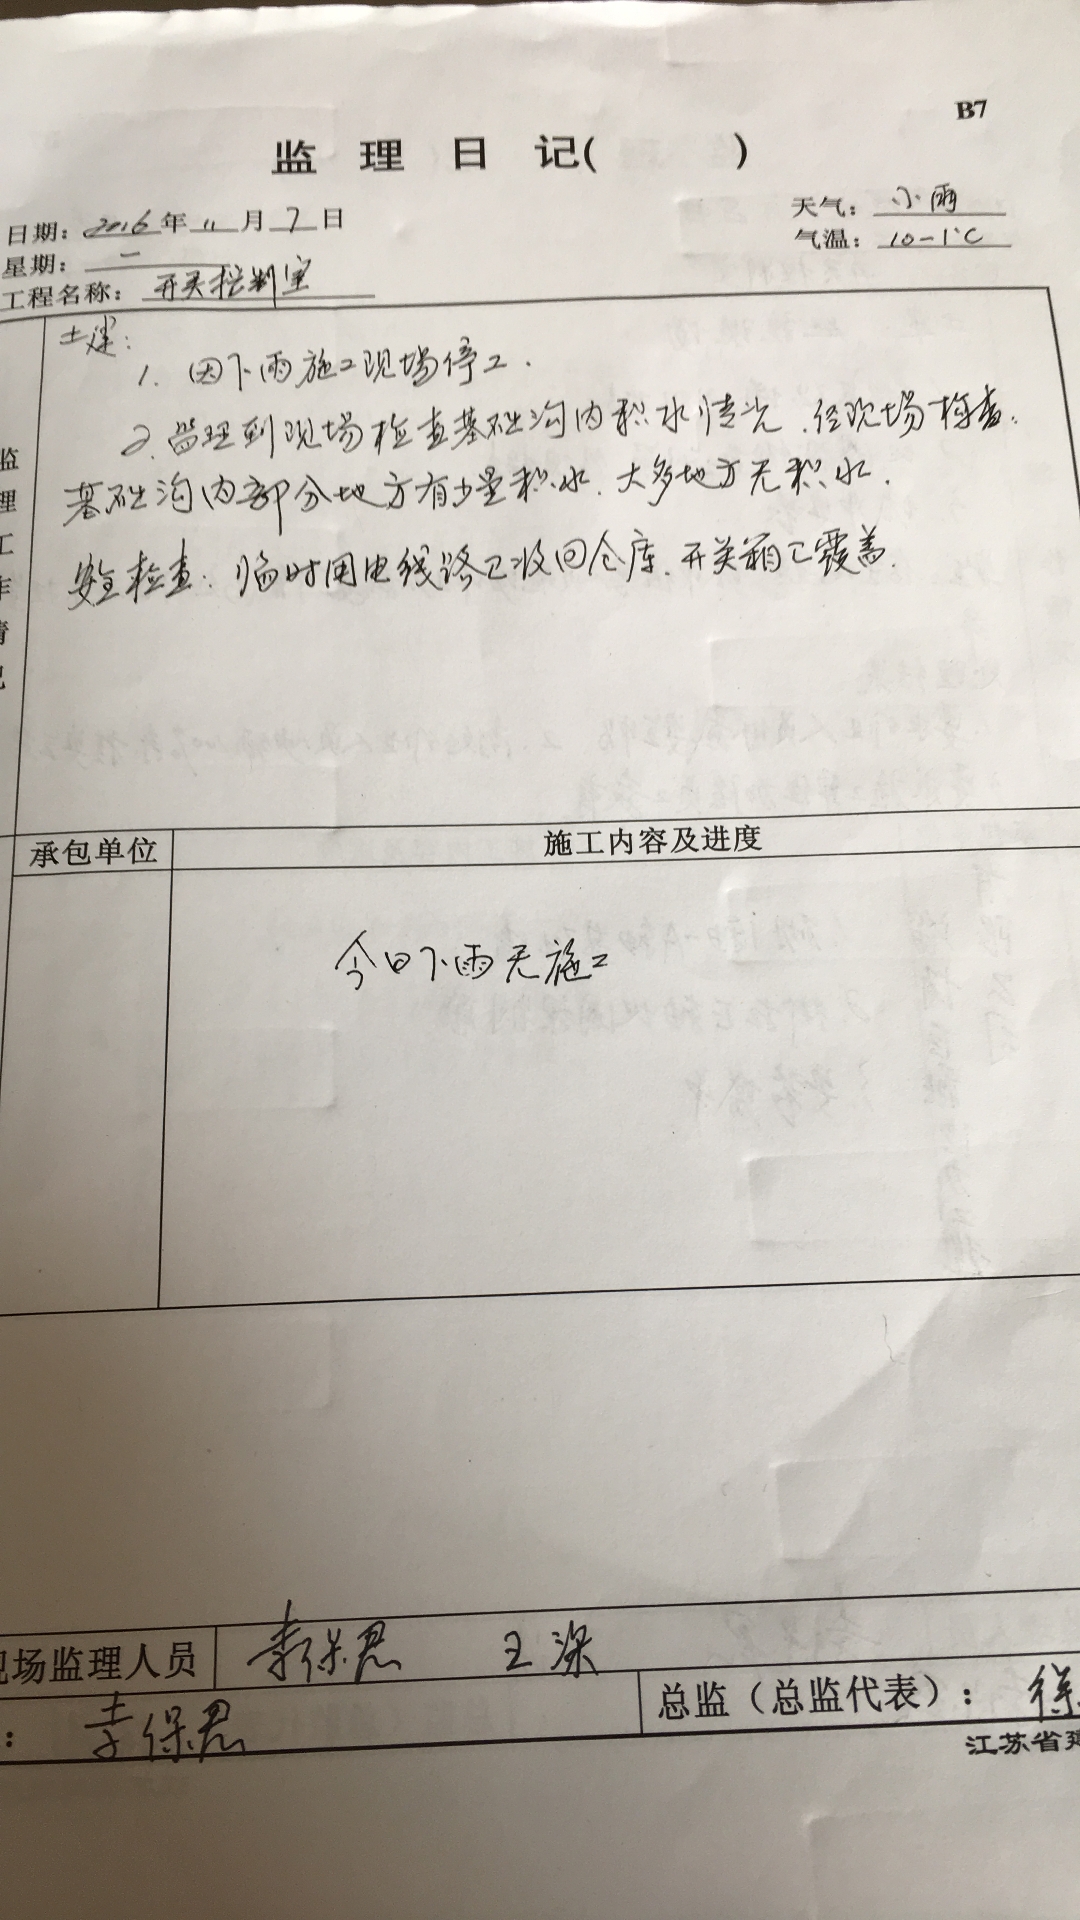 B7
监 理 日 记( )
日期: 2016 年 11 月 7 日
天气: 小雨
星期: 一
气温: 10-1℃
工程名称: 开关控制室
监理工作情况
土建:
1. 因下雨施工现场停工.
2. 监理到现场检查基础沟内积水情况.经现场检查.
基础沟内部分地方有少量积水.大多地方无积水.
安全检查: 临时用电线路已收回仓库.开关箱已覆盖.
承包单位 施工内容及进度
今日下雨无施工
现场监理人员 李保君 王深
: 李保君 总监(总监代表): 徐
江苏省建